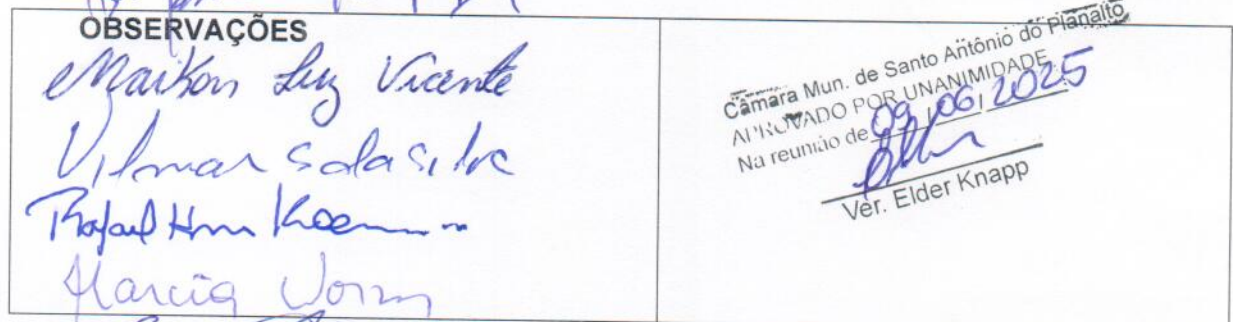 OBSERVAÇÕES
Maikon Luz Vicente
Vilmar S da Silva
Rafael
Marcia
Câmara Mun. de Santo Antônio do Planalto
APROVADO POR UNANIMIDADE
Na reunião de 09/06/2025
Ver. Elder Knapp